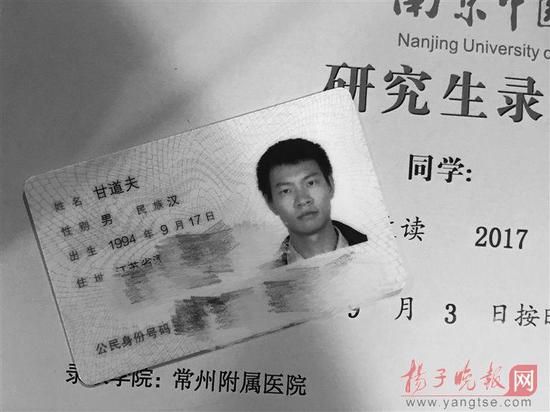 南京中医
Nanjing University o
研究生录
同学:
读 2017
姓名 甘道夫
性别 男 民族 汉
出生 1994 年 9 月 17 日
住址 江苏省
公民身份号码
9 月 3 日按时
学院: 常州附属医院
揚子晚報网
www.yangtse.com